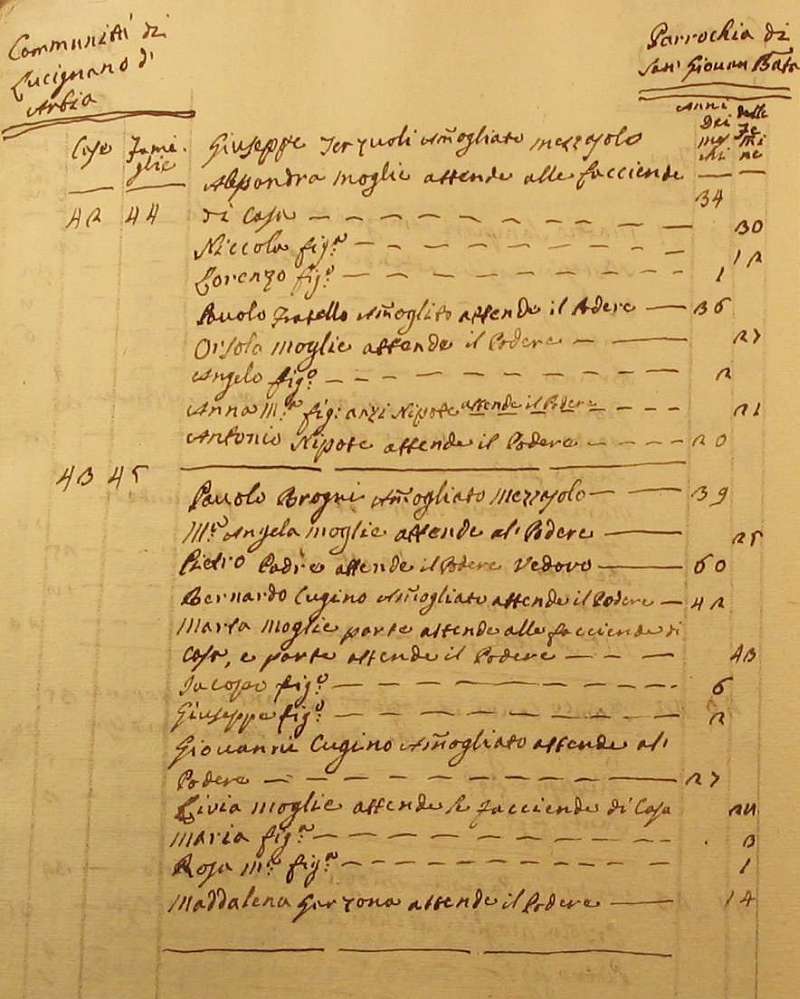 Communità di
Lucignano d'
Arbia
Parrochia di
San' Giovan Batta
Case
Fami-
glie
Anni
Dei
ma
schi
delle
Fe
mi
ne
Giuseppe Terzuoli Amogliato mezzajolo
Alesandra moglie attende alle facciende
34
42 44 di Casa 30
Niccola figa 12
Lorenzo figo 1
Pavolo Fratello Amogliato attende il Podere 36
Orsola moglie attende il Podere 27
Angelo figo 2
Anna Ma fig: anzi Nipote attende il Podere 21
Antonio Nipote attende il Podere 20
43 45
Pavolo Brogni Amogliato Mezzajolo 39
Ma Angela moglie attende al' Podere 25
Pietro Padre attende il Podere Vedovo 60
Bernardo Cugino Amogliato attende il Podere 42
Marta moglie parte attende alle facciende di
Casa, e parte attende il Podere 43
Jacopo figo 6
Giuseppe figo 2
Giovanni Cugino Amogliato attende al'
Podere 27
Livia moglie attende le facciende di Casa 24
Maria figa 3
Rosa Ma figa 1
Maddalena Garzona attende il Podere 14